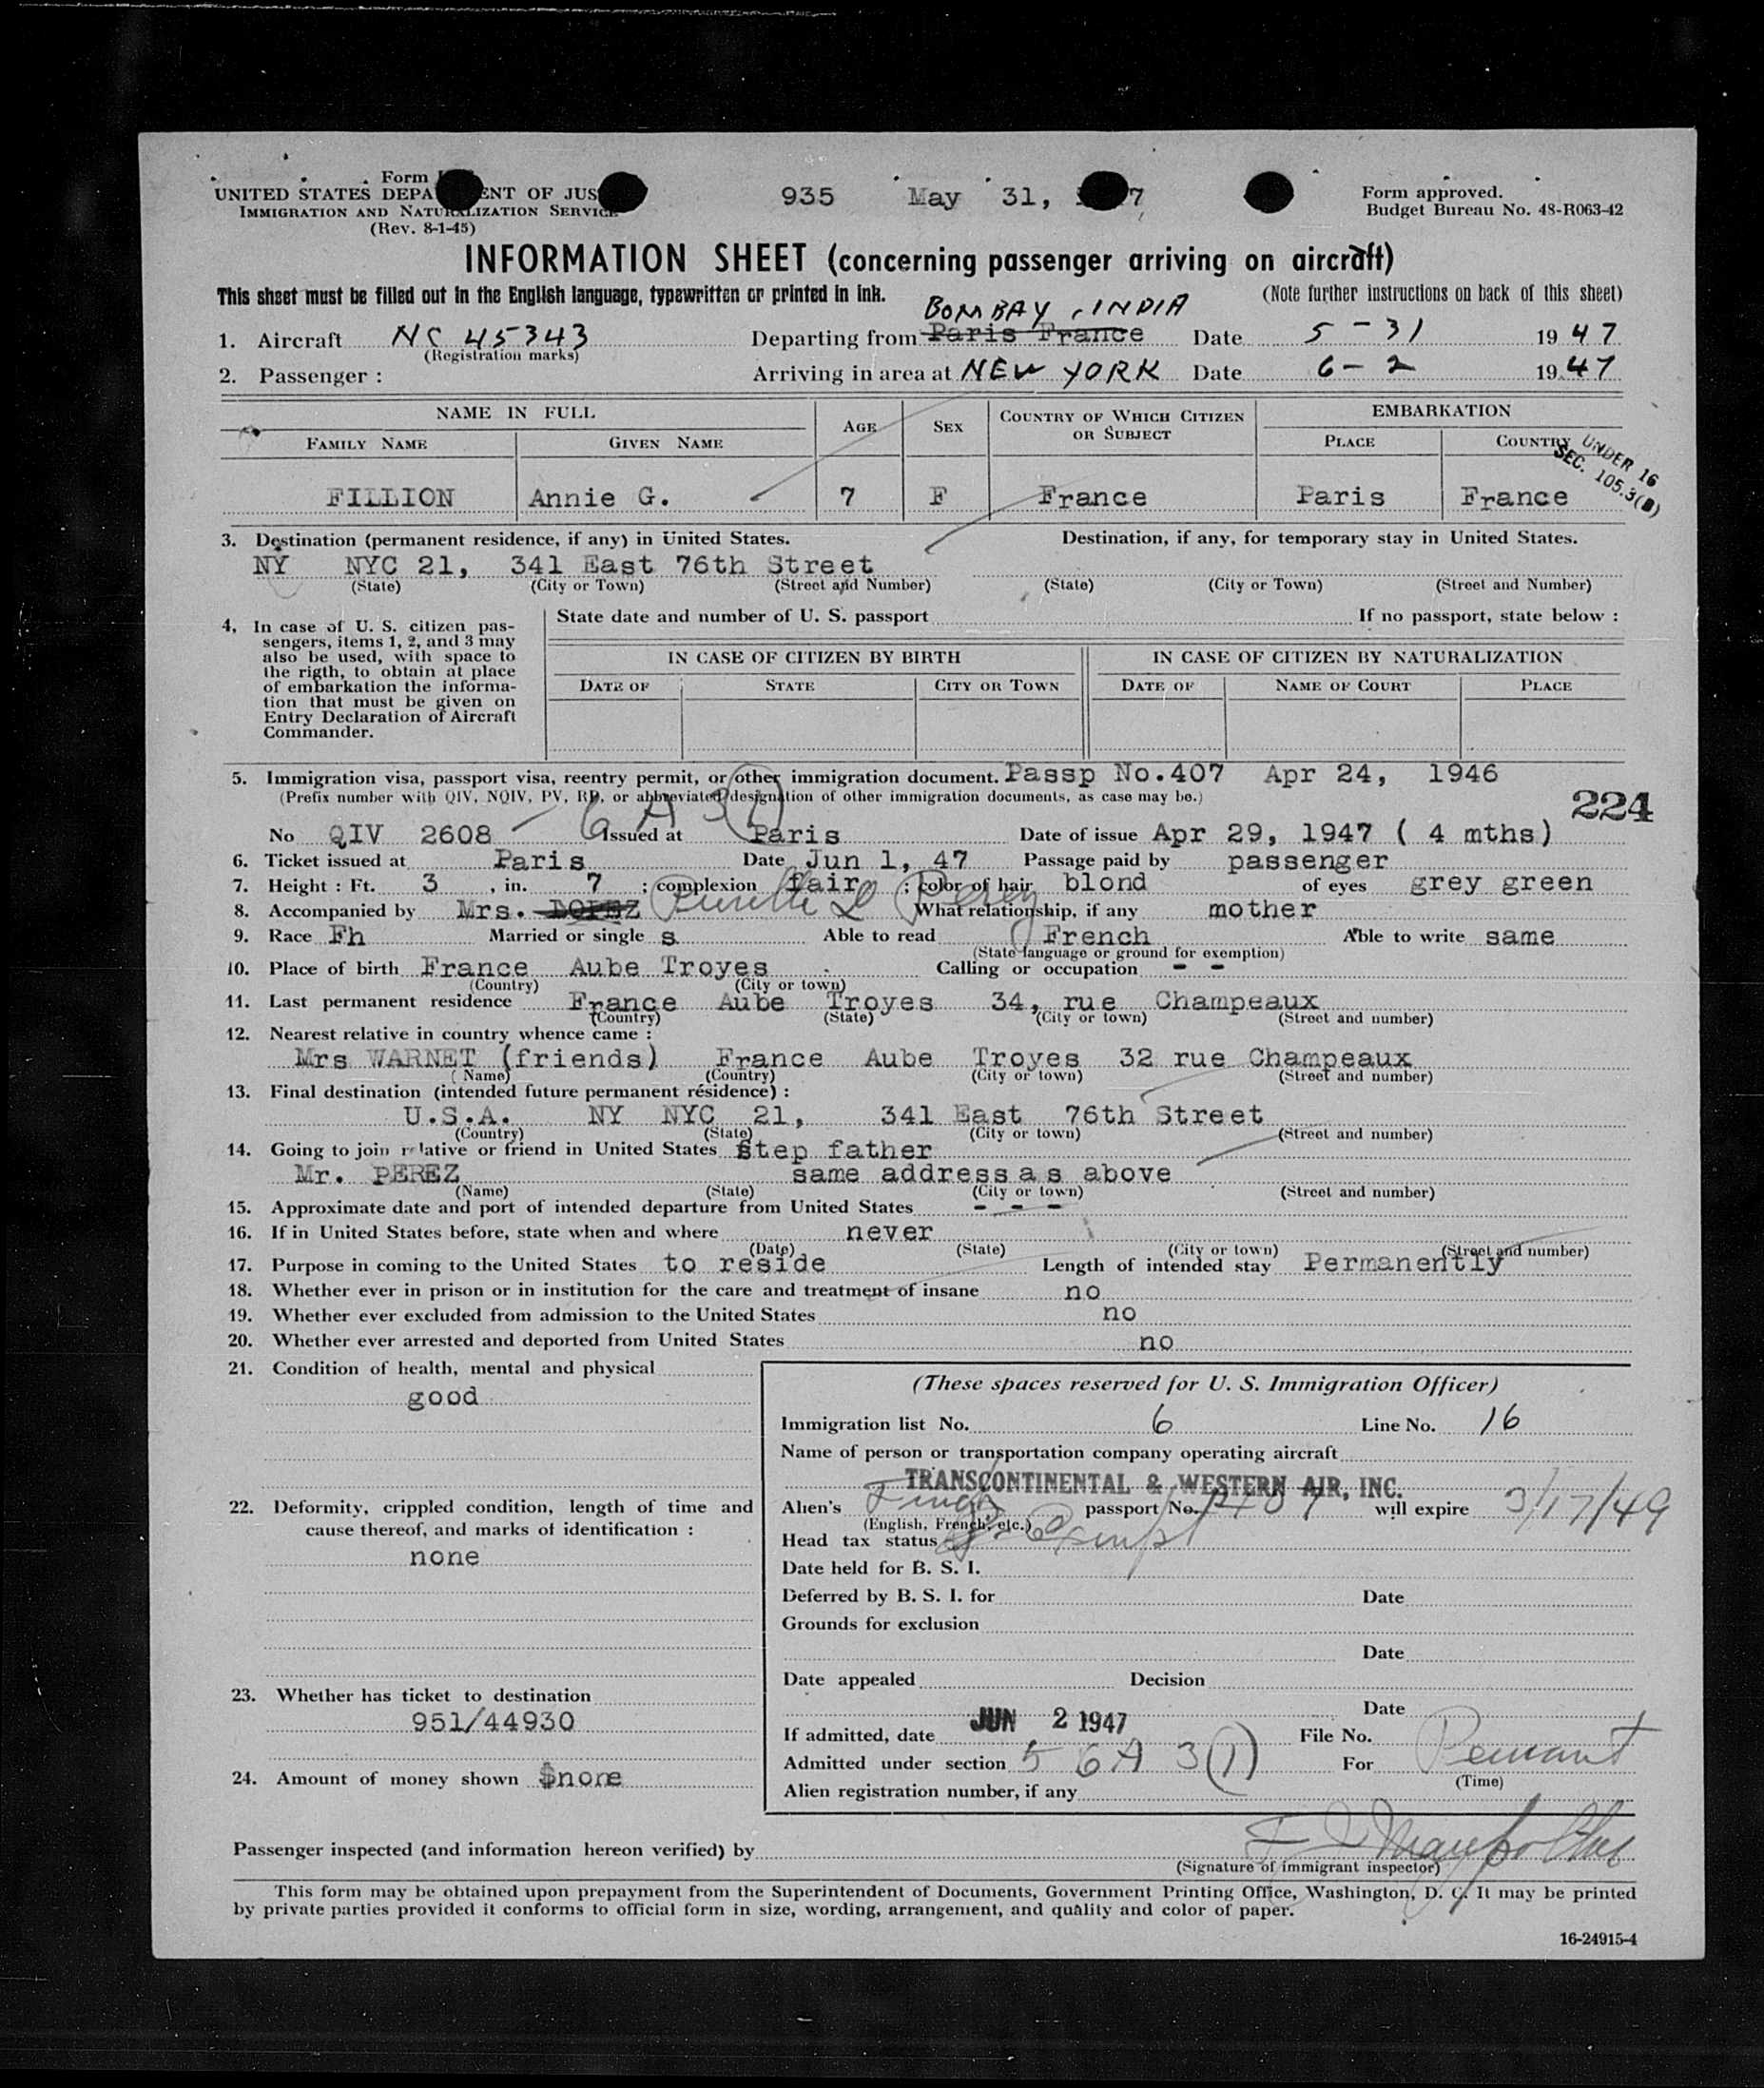 Form
UNITED STATES DEPA ENT OF JUS 935 May 31, 7 Form approved.
IMMIGRATION AND NATURALIZATION SERVICE Budget Bureau No. 43-R063-42
(Rev. 8-1-45)
INFORMATION SHEET (concerning passenger arriving on aircraft)
This sheet must be filled out in the English language, typewritten or printed in ink. (Note further instructions on back of this sheet)
BOMBAY, INDIA
1. Aircraft NC 45343 Departing from Paris France Date 5-31 1947
(Registration marks)
2. Passenger : Arriving in area at NEW YORK Date 6-2 1947
NAME IN FULL AGE SEX COUNTRY OF WHICH CITIZEN OR SUBJECT EMBARKATION
FAMILY NAME GIVEN NAME PLACE COUNTRY
UNDER 16
SEC. 105.3(B)
FILLION Annie G. 7 F France Paris France
3. Destination (permanent residence, if any) in United States. Destination, if any, for temporary stay in United States.
NY NYC 21, 341 East 76th Street
(State) (City or Town) (Street and Number) (State) (City or Town) (Street and Number)
4, In case of U. S. citizen pas- State date and number of U. S. passport If no passport, state below :
sengers, items 1, 2, and 3 may
also be used, with space to IN CASE OF CITIZEN BY BIRTH IN CASE OF CITIZEN BY NATURALIZATION
the rigth, to obtain at place
of embarkation the informa- DATE OF STATE CITY OR TOWN DATE OF NAME OF COURT PLACE
tion that must be given on
Entry Declaration of Aircraft
Commander.
5. Immigration visa, passport visa, reentry permit, or other immigration document. Passp No.407 Apr 24, 1946
(Prefix number with QIV, NQIV, PV, RP, or abbreviated designation of other immigration documents, as case may be.)
224
6 A 3(1)
No QIV 2608 Issued at Paris Date of issue Apr 29, 1947 ( 4 mths)
6. Ticket issued at Paris Date Jun 1, 47 Passage paid by passenger
7. Height : Ft. 3 , in. 7 ; complexion fair ; color of hair blond of eyes grey green
8. Accompanied by Mrs. LOPEZ Perez What relationship, if any mother
9. Race Fh Married or single s Able to read French Able to write same
(State language or ground for exemption)
10. Place of birth France Aube Troyes Calling or occupation - -
(Country) (City or town)
11. Last permanent residence France Aube Troyes 34, rue Champeaux
(Country) (State) (City or town) (Street and number)
12. Nearest relative in country whence came :
Mrs WARNET (friends) France Aube Troyes 32 rue Champeaux
(Name) (Country) (City or town) (Street and number)
13. Final destination (intended future permanent résidence) :
U.S.A. NY NYC 21, 341 East 76th Street
(Country) (State) (City or town) (Street and number)
14. Going to join relative or friend in United States step father
Mr. PEREZ same address as above
(Name) (State) (City or town) (Street and number)
15. Approximate date and port of intended departure from United States - - -
16. If in United States before, state when and where never
(Date) (State) (City or town) (Street and number)
17. Purpose in coming to the United States to reside Length of intended stay Permanently
18. Whether ever in prison or in institution for the care and treatment of insane no
19. Whether ever excluded from admission to the United States no
20. Whether ever arrested and deported from United States no
21. Condition of health, mental and physical
good
(These spaces reserved for U. S. Immigration Officer)
Immigration list No. 6 Line No. 16
Name of person or transportation company operating aircraft
TRANSCONTINENTAL & WESTERN AIR, INC.
22. Deformity, crippled condition, length of time and
cause thereof, and marks of identification :
none
Alien's French passport No. 407 will expire 3/17/49
(English, French, etc.)
Head tax status Exempt
Date held for B. S. I.
Deferred by B. S. I. for Date
Grounds for exclusion
Date
Date appealed Decision
23. Whether has ticket to destination
951/44930
Date
If admitted, date JUN 2 1947 File No.
Admitted under section 5 6A 3(1) For Permant
(Time)
24. Amount of money shown $none
Alien registration number, if any
Passenger inspected (and information hereon verified) by
(Signature of immigrant inspector)
This form may be obtained upon prepayment from the Superintendent of Documents, Government Printing Office, Washington, D. C. It may be printed
by private parties provided it conforms to official form in size, wording, arrangement, and quality and color of paper.
16-24915-4